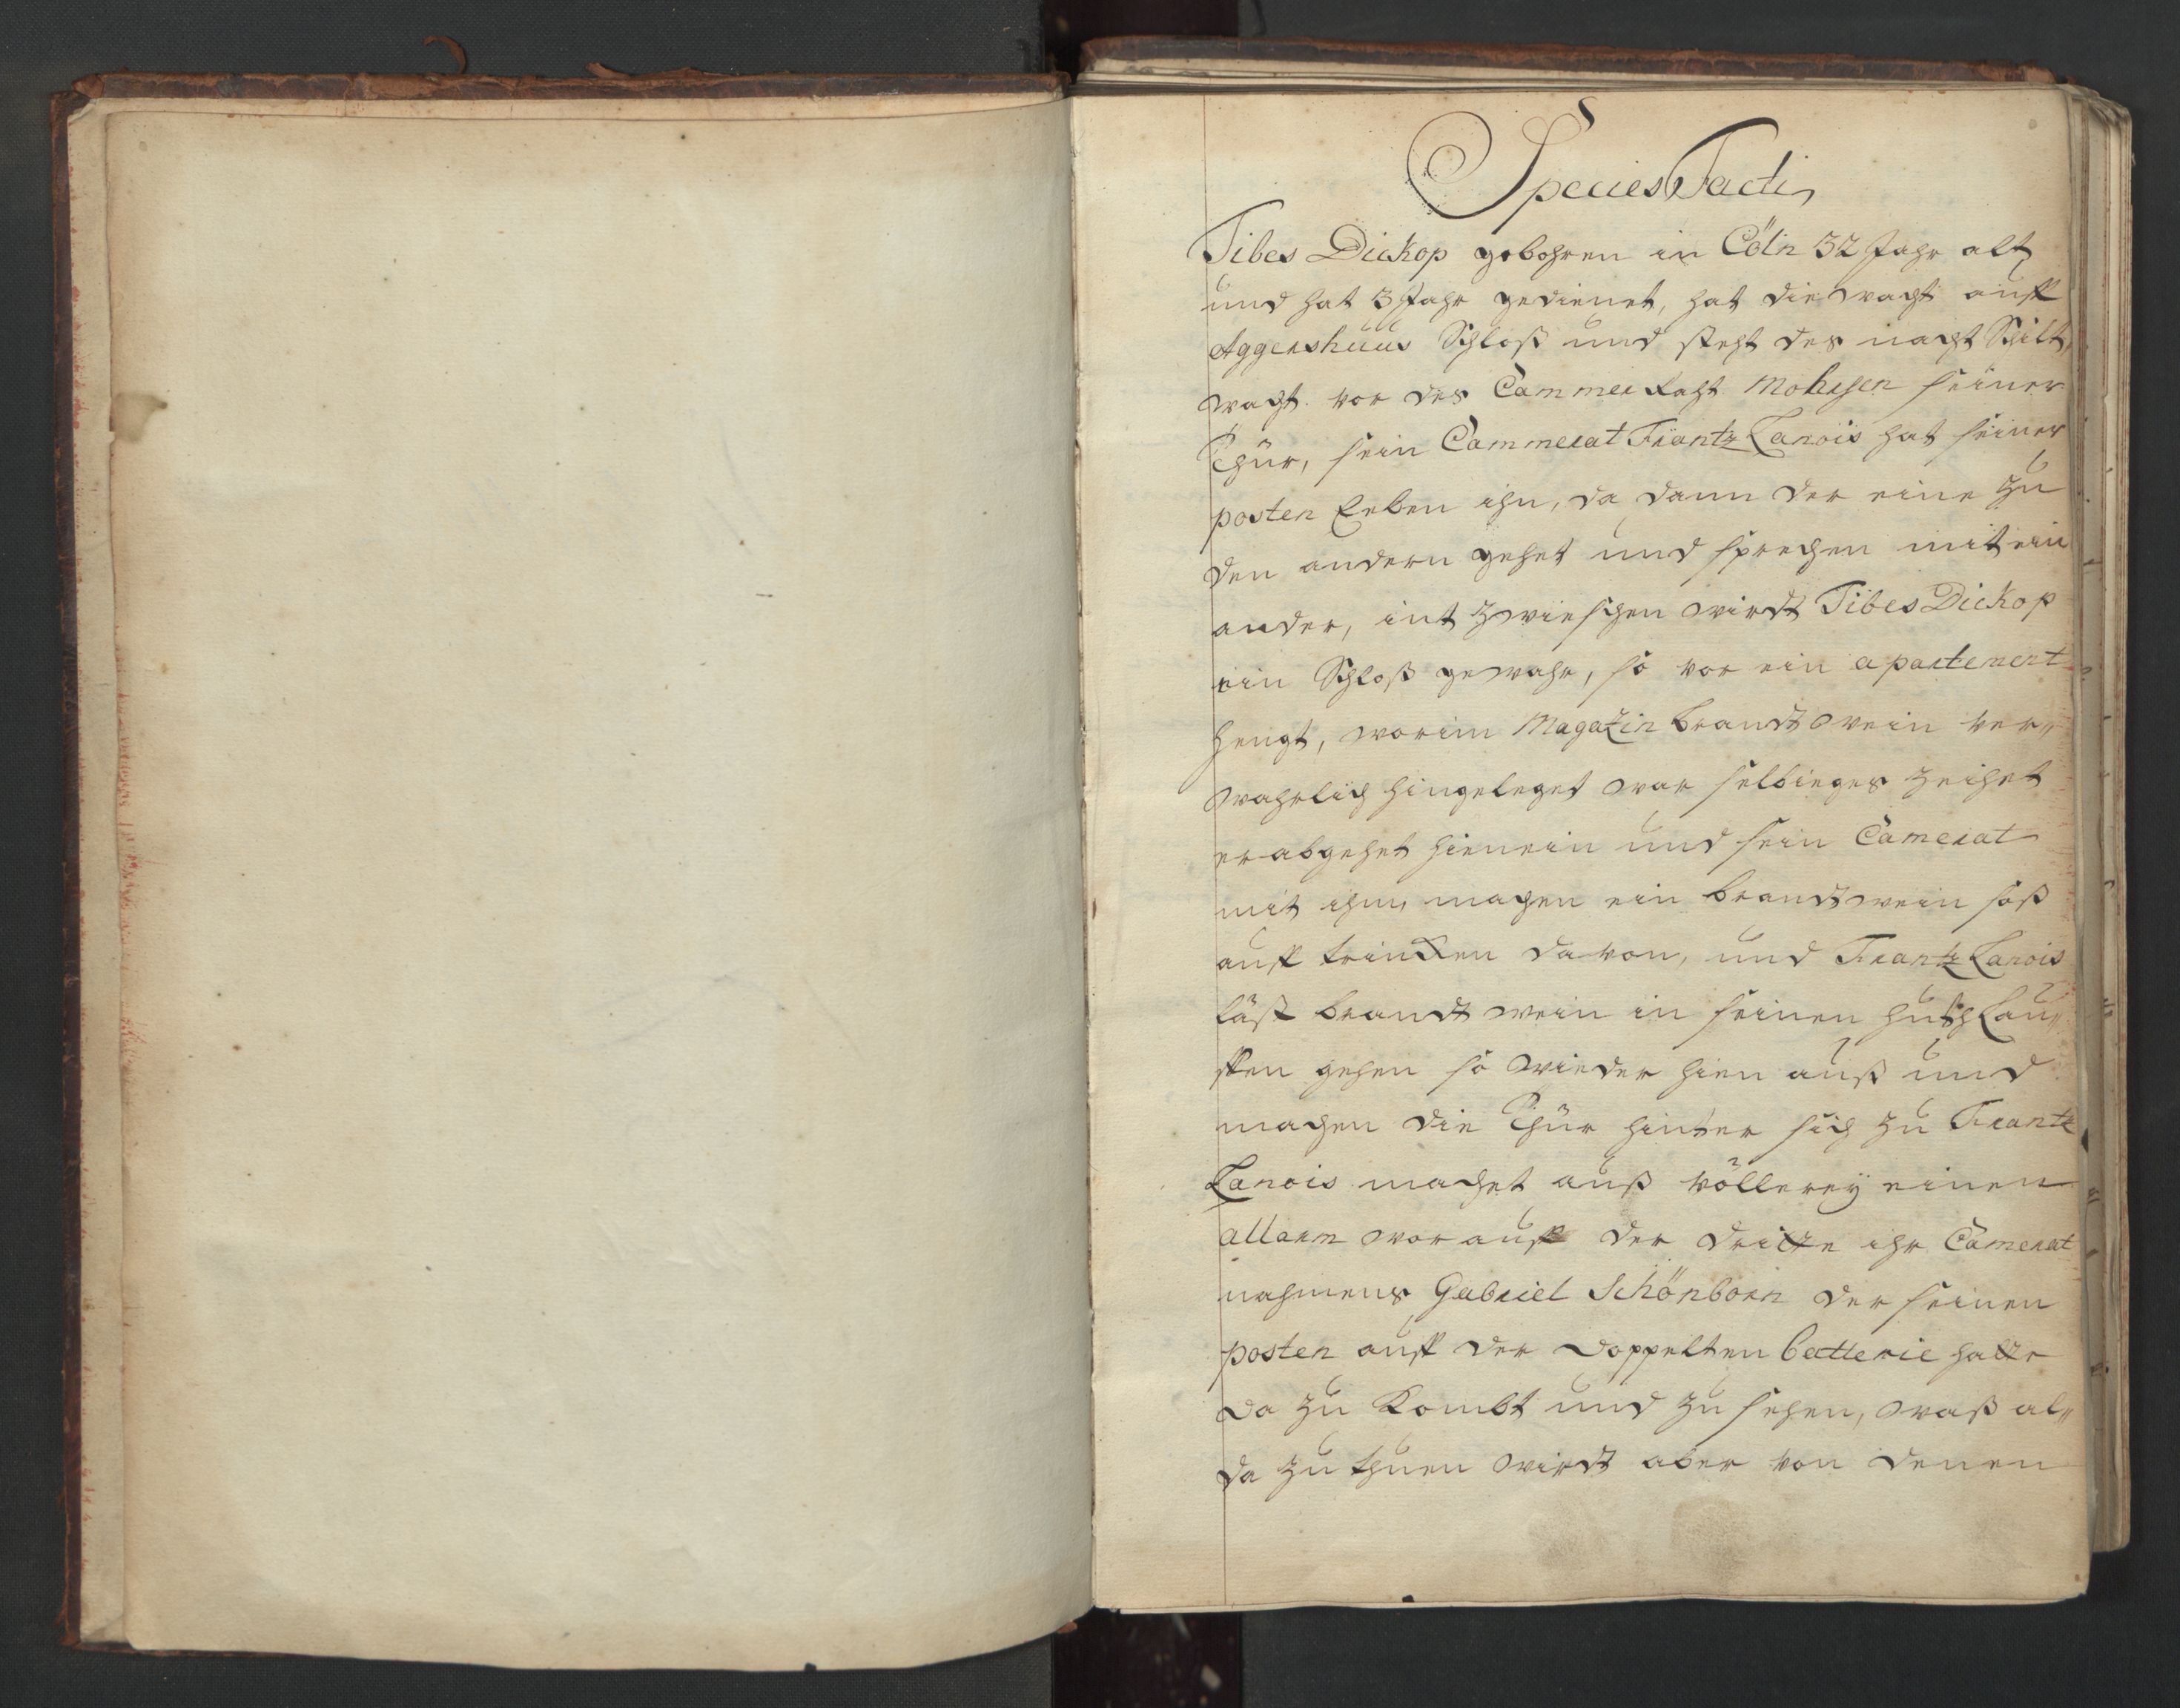 Species Facti,
Tibes Dickop gebohren in Cöln 32 Jahr alt,
und hat 3 Jahr gedienet, hat die wacht auff
Aggershuus Schloß und steht des nacht Schilt,
wacht vor des Cammer Raht Mohrsen seiner
Thür, sein Cammerat Frantz Lanois hat seiner
posten Eeben ihn, da dann der eine zu
den andern gehet und sprechen mit ein
ander, int zwieschen wirdt Tibes Dickop
ein Schloß gewahr, so vor ein apartement
hengt, worinn Magazin brandtwein ver„
wahrlich hingeleget war selbieges zeihet
er abgehet hienein und sein Camerat
mit ihm, machen ein brandtwein faß
auff trincken davon, und Frantz Lanois
läst brandtwein in seinen huth Lau„
ffen gehen so wieder hien auß und
machen die Thür hinter sich zu Frantz
Lanois machet auß völlerey einen
allarm worauff der dritte ihr Camerat
nahmens Gabriel Schönborn der seinen
posten auff der doppelten batterie hatte
da zu kombt und zu sehen, waß al„
da zu thuen wirdt aber von denen